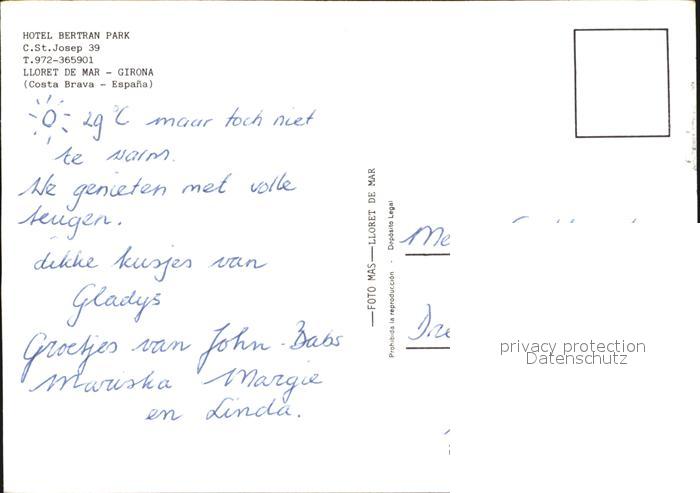 HOTEL BERTRAN PARK
C.St.Josep 39
T.972-365901
LLORET DE MAR - GIRONA
(Costa Brava - España)
29 °C maar toch niet
te warm.
We genieten met volle
teugen.
dikke kusjes van
Gladys
Groetjes van John - Babs
Mariska Margie
en Linda.
—FOTO MAS—LLORET DE MAR
Prohibida la reproducción - Depósito Legal
Me
Dre
privacy protection
Datenschutz